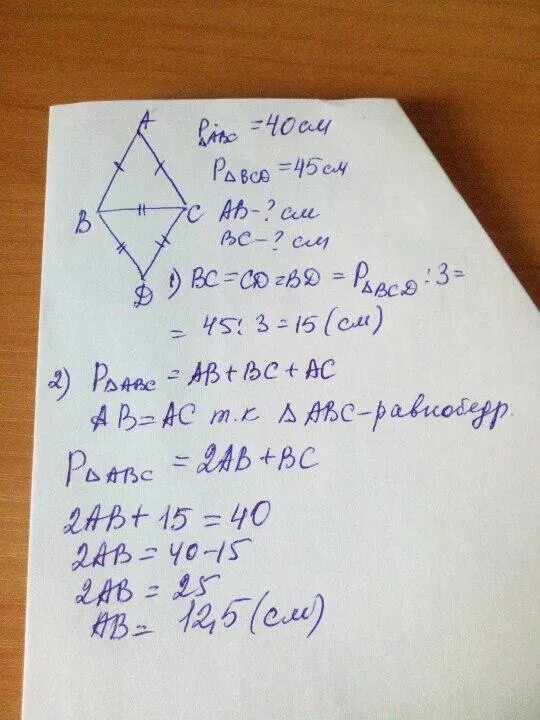 A
B
C
D
P△ABC = 40 см
P△BCD = 45 см
AB - ? см
BC - ? см
1) BC = CD = BD = P△BCD : 3 =
= 45 : 3 = 15 (см)
2) P△ABC = AB + BC + AC
AB = AC т.к △ABC - равнобедр.
P△ABC = 2AB + BC
2AB + 15 = 40
2AB = 40 - 15
2AB = 25
AB = 12,5 (см)